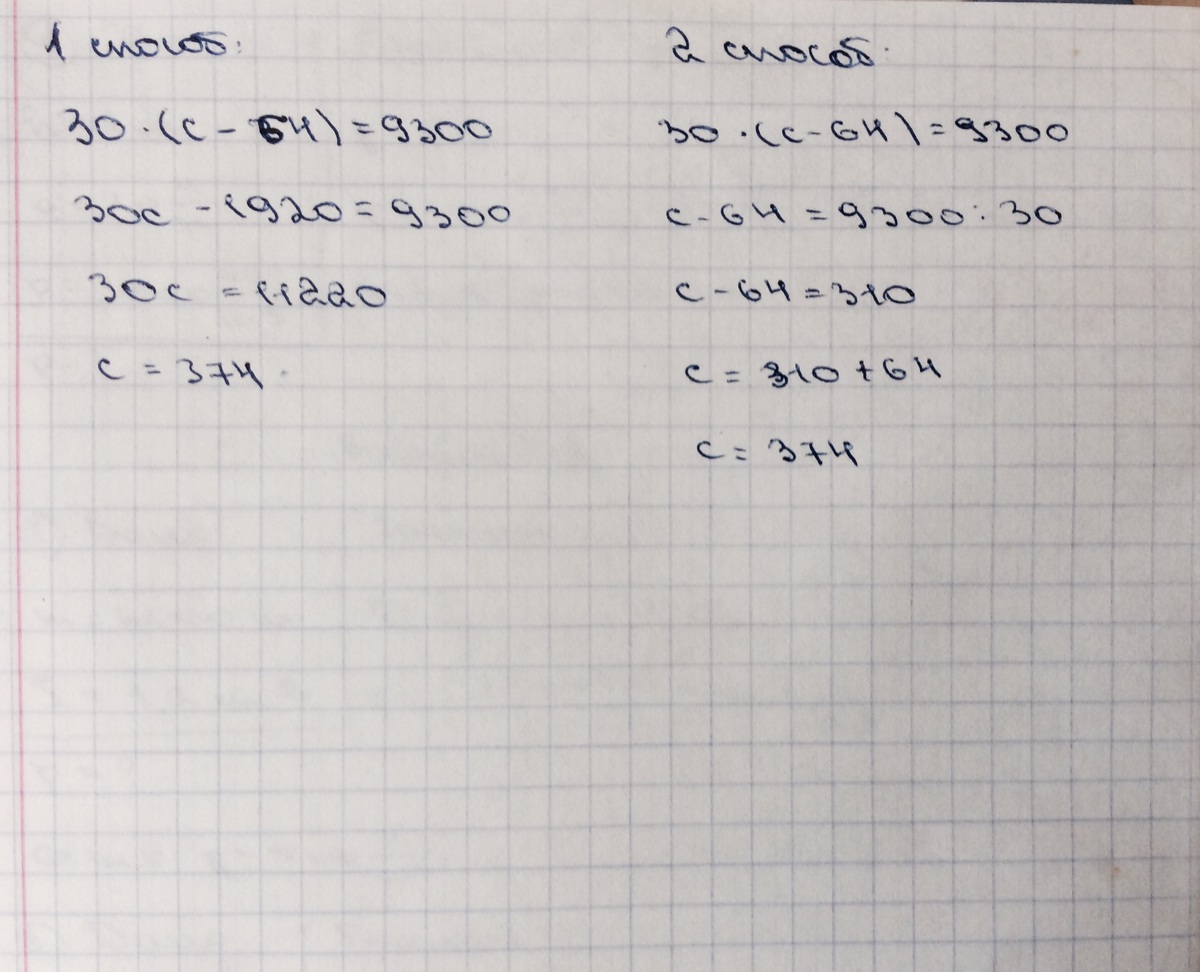 1 способ:
30 · (с - 64) = 9300
30с - 1920 = 9300
30с = 11220
с = 374
2 способ:
30 · (с - 64) = 9300
с - 64 = 9300 : 30
с - 64 = 310
с = 310 + 64
с = 374